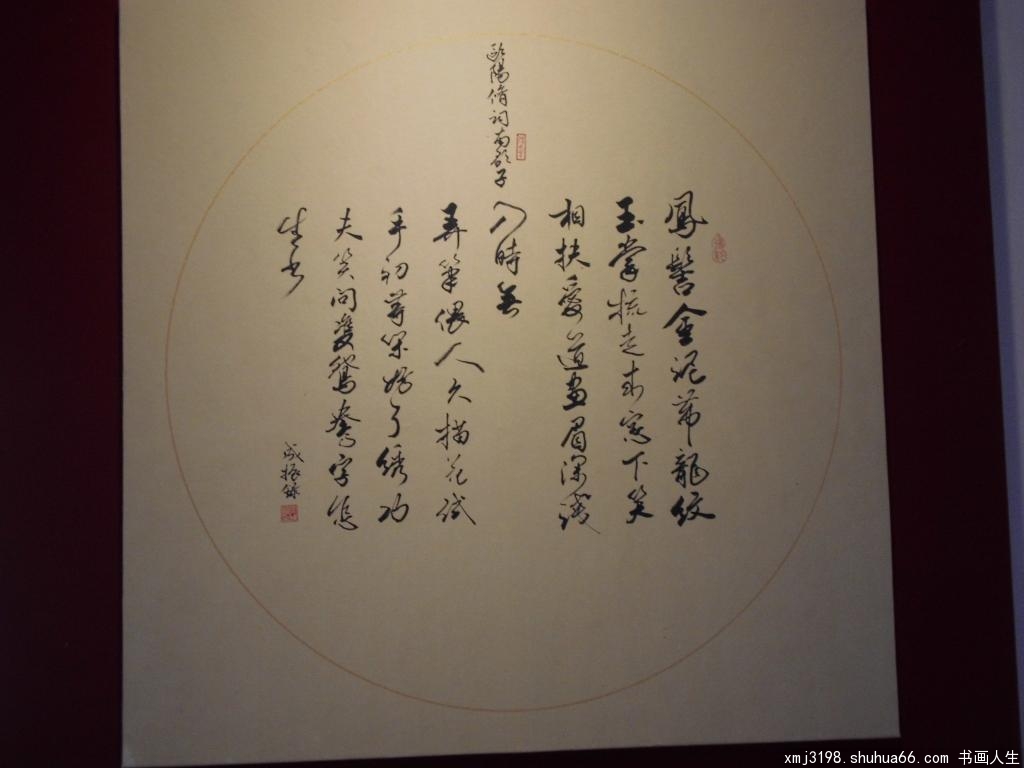 歐陽脩詞南歌子
鳳髻金泥帶龍紋
玉掌梳走來窗下笑
相扶愛道畫眉深淺
入時無
弄筆偎人久描花試
手初等閑妨了繡功
夫笑問雙鴛鴦字怎
生書
xmj3198.shuhua66.com 书画人生